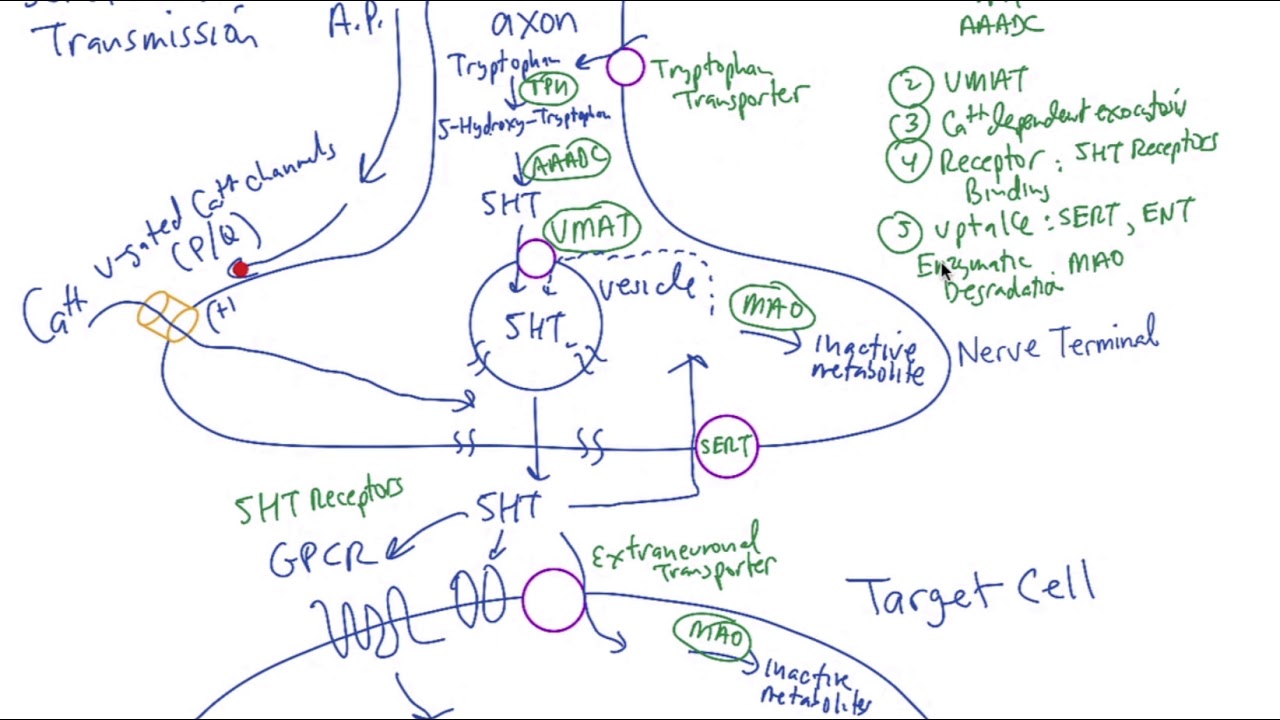 Transmission
A.P.
axon
Tryptophan
TPH
5-Hydroxy-Tryptophan
AAADC
5HT
VMAT
5HT
vesicle
Tryptophan
Transporter
AAADC
② VMAT
③ Ca++ dependent exocytosis
④ Receptor : 5HT Receptors
Binding
⑤ uptake : SERT, ENT
Enzymatic MAO
Degradation
v-gated Ca++ channels
(P/Q)
Ca++
(+)
MAO
Inactive
metabolite
Nerve Terminal
SERT
5HT Receptors
5HT
GPCR
Extraneuronal
Transporter
Target Cell
MAO
Inactive
metabolites